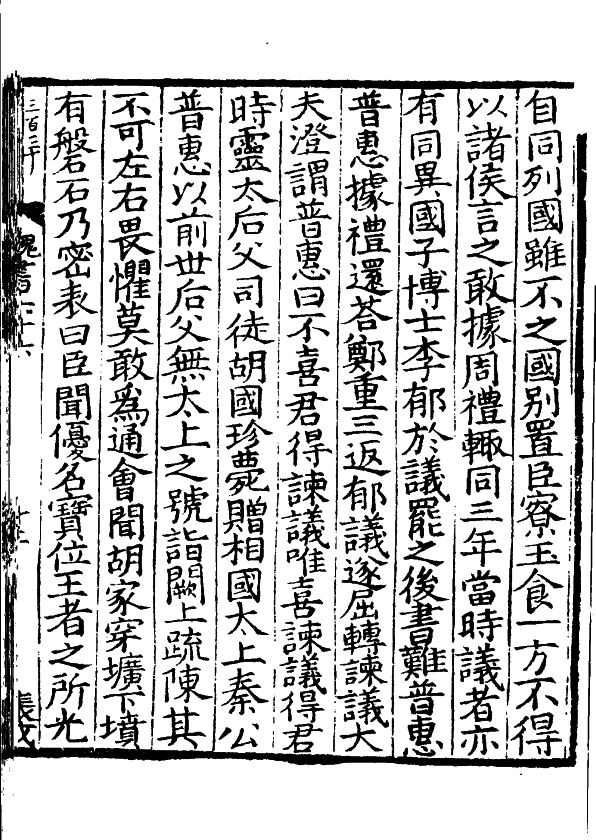 自同列國雖不之國別置臣寮玉食一方不得
以諸侯言之敢據周禮輙同三年當時議者亦
有同異國子博士李郁於議罷之後書難普惠
普惠據禮還荅鄭重三返郁議遂屈轉諫議大
夫澄謂普惠曰不喜君得諫議唯喜諫議得君
時靈太后父司徒胡國珍薨贈相國太上秦公
普惠以前世后父無太上之號詣闕上疏陳其
不可左右畏懼莫敢爲通會聞胡家穿壙下墳
有磐石乃密表曰臣聞優名寶位王者之所光
魏書六十六